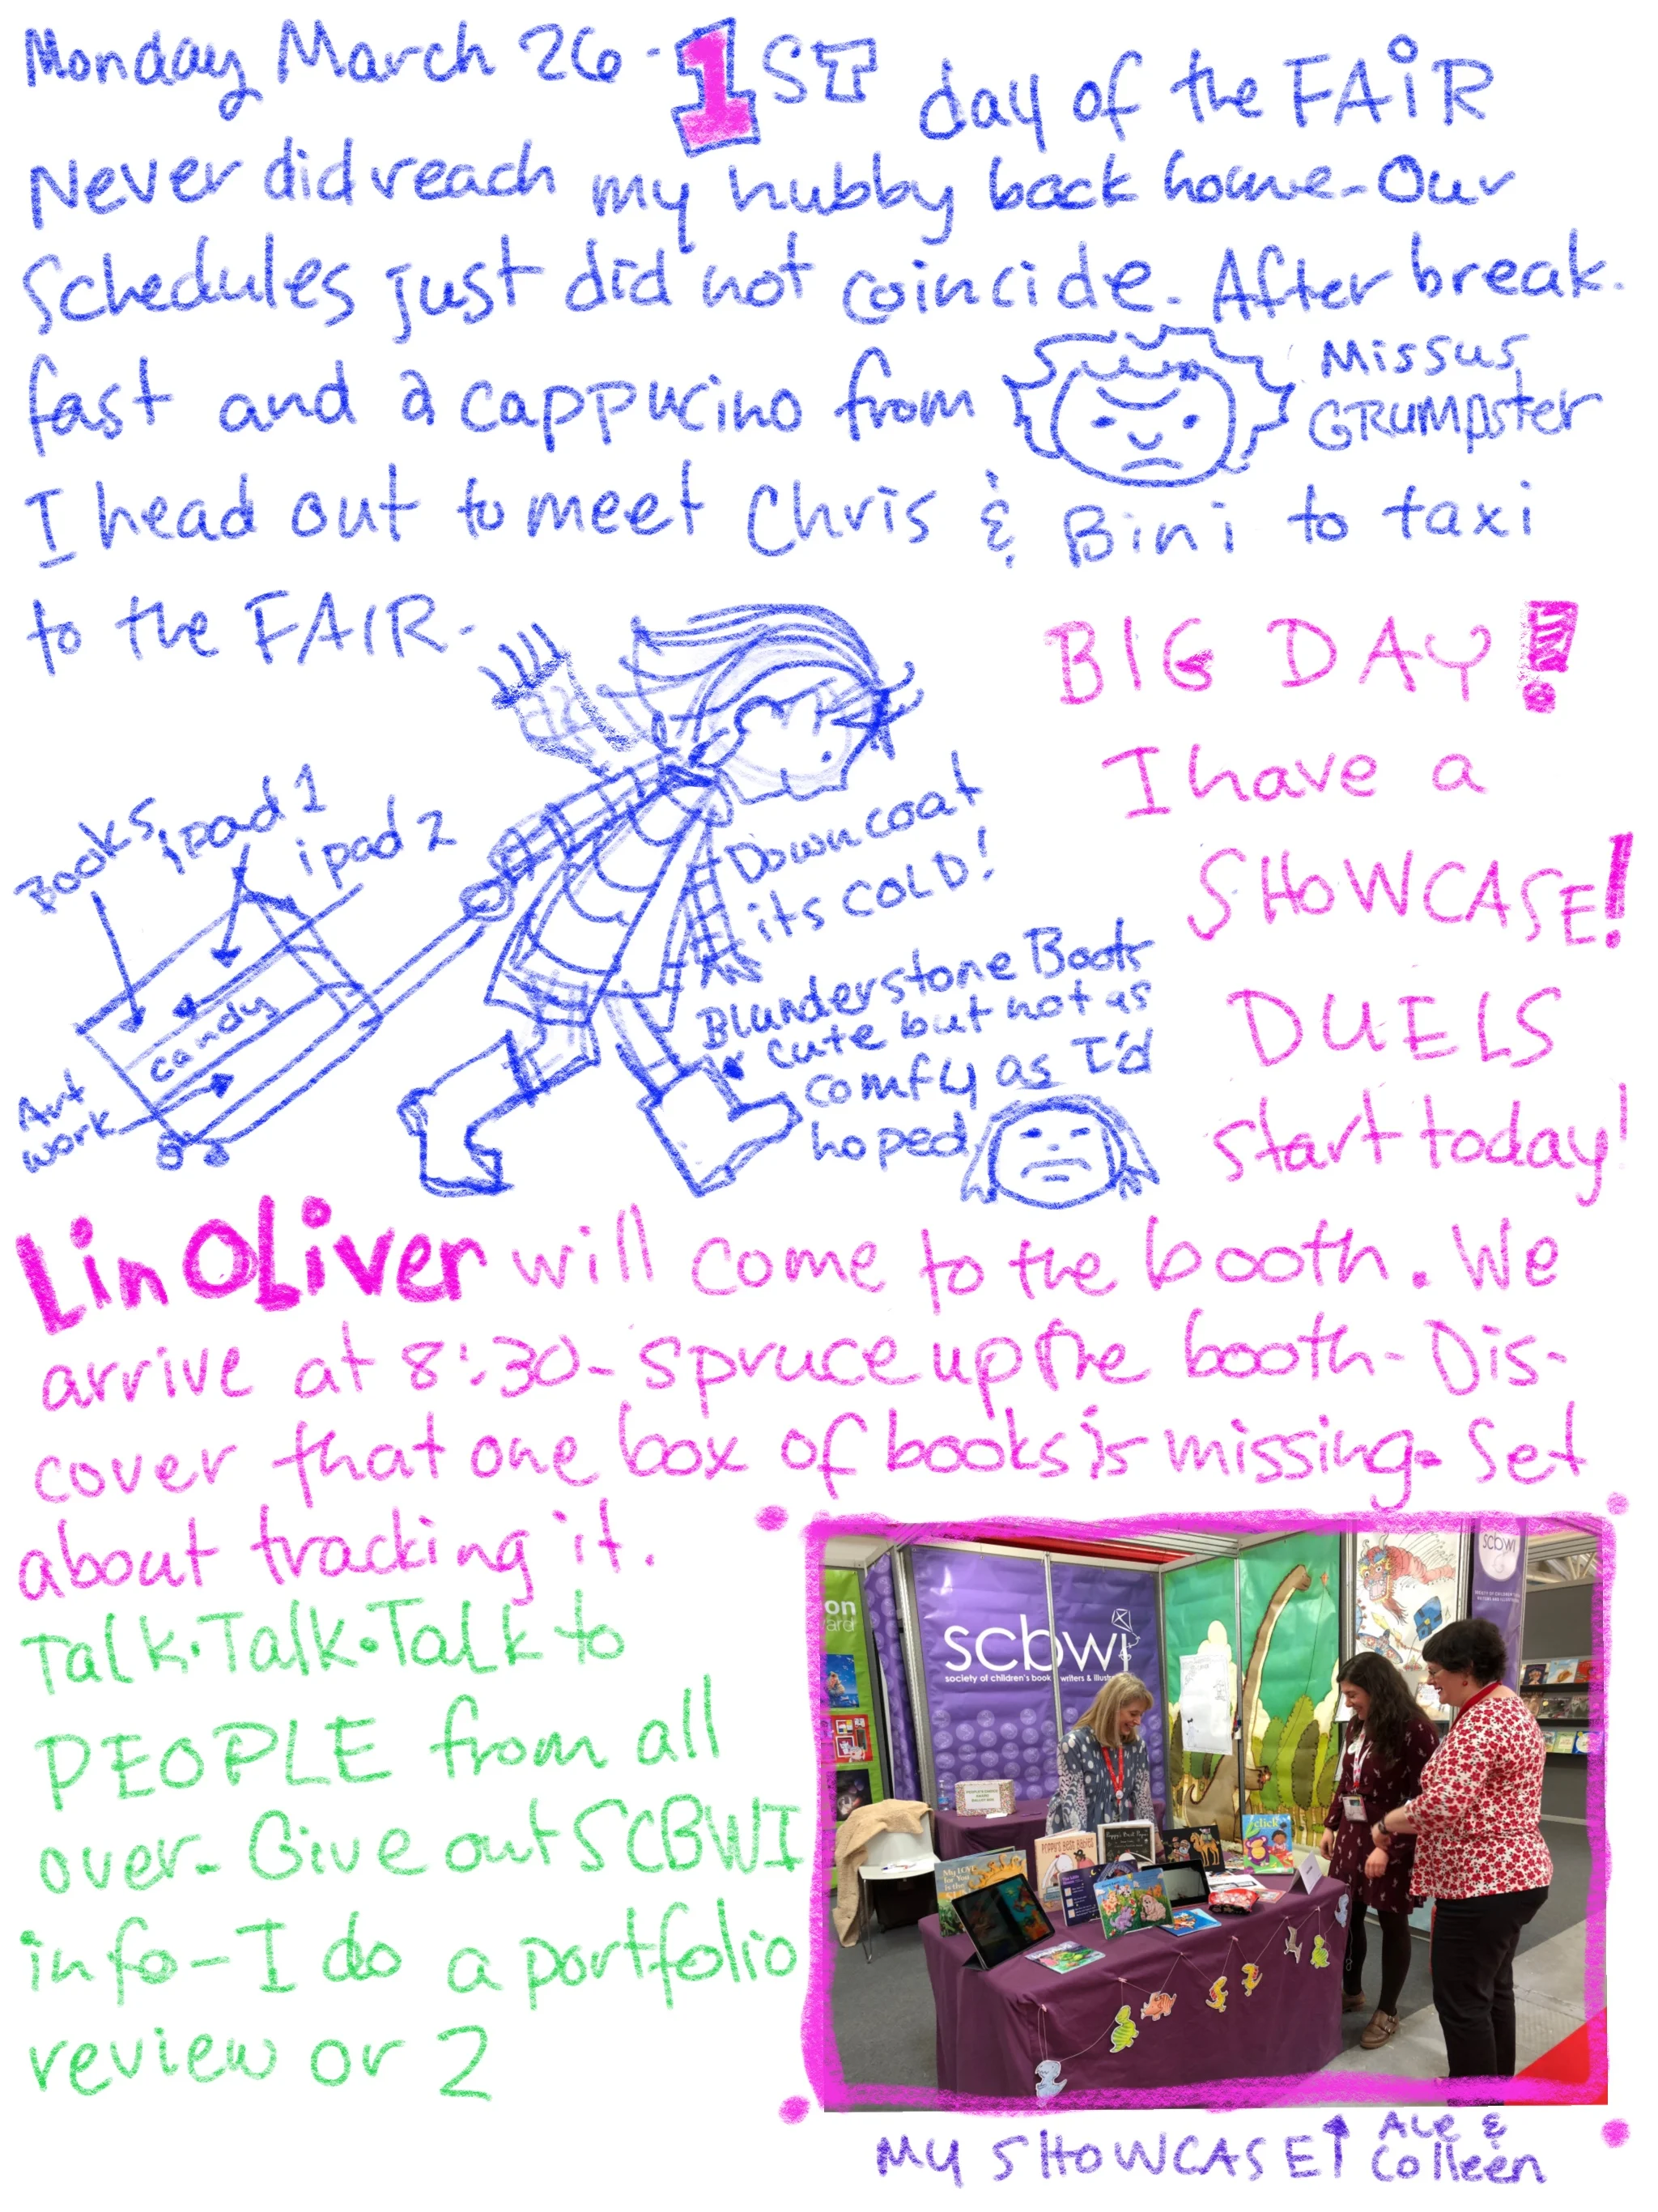 Monday March 26 - 1ST day of the FAiR
Never did reach my hubby back home - Our
Schedules just did not coincide. After break-
fast and a cappucino from Missus GRUMpster
I head out to meet Chris & Bini to taxi
to the FAIR.
BIG DAY!
I have a
SHOWCASE!
DUELS
start today!
Books
ipad 1
ipad 2
candy
Art
work
Down coat
its COLD!
Blunderstone Boots
cute but not as
comfy as I'd
hoped
Lin OLiver will come to the booth. We
arrive at 8:30 - spruce up the booth - Dis-
cover that one box of books is missing. Set
about tracking it.
Talk. Talk. Talk to
PEOPLE from all
over - Give out SCBWI
info - I do a portfolio
review or 2
on
ard
scbwi
society of children's book writers & illust
scbwi
click
My SHOWCASE ↑ Ale &
Colleen